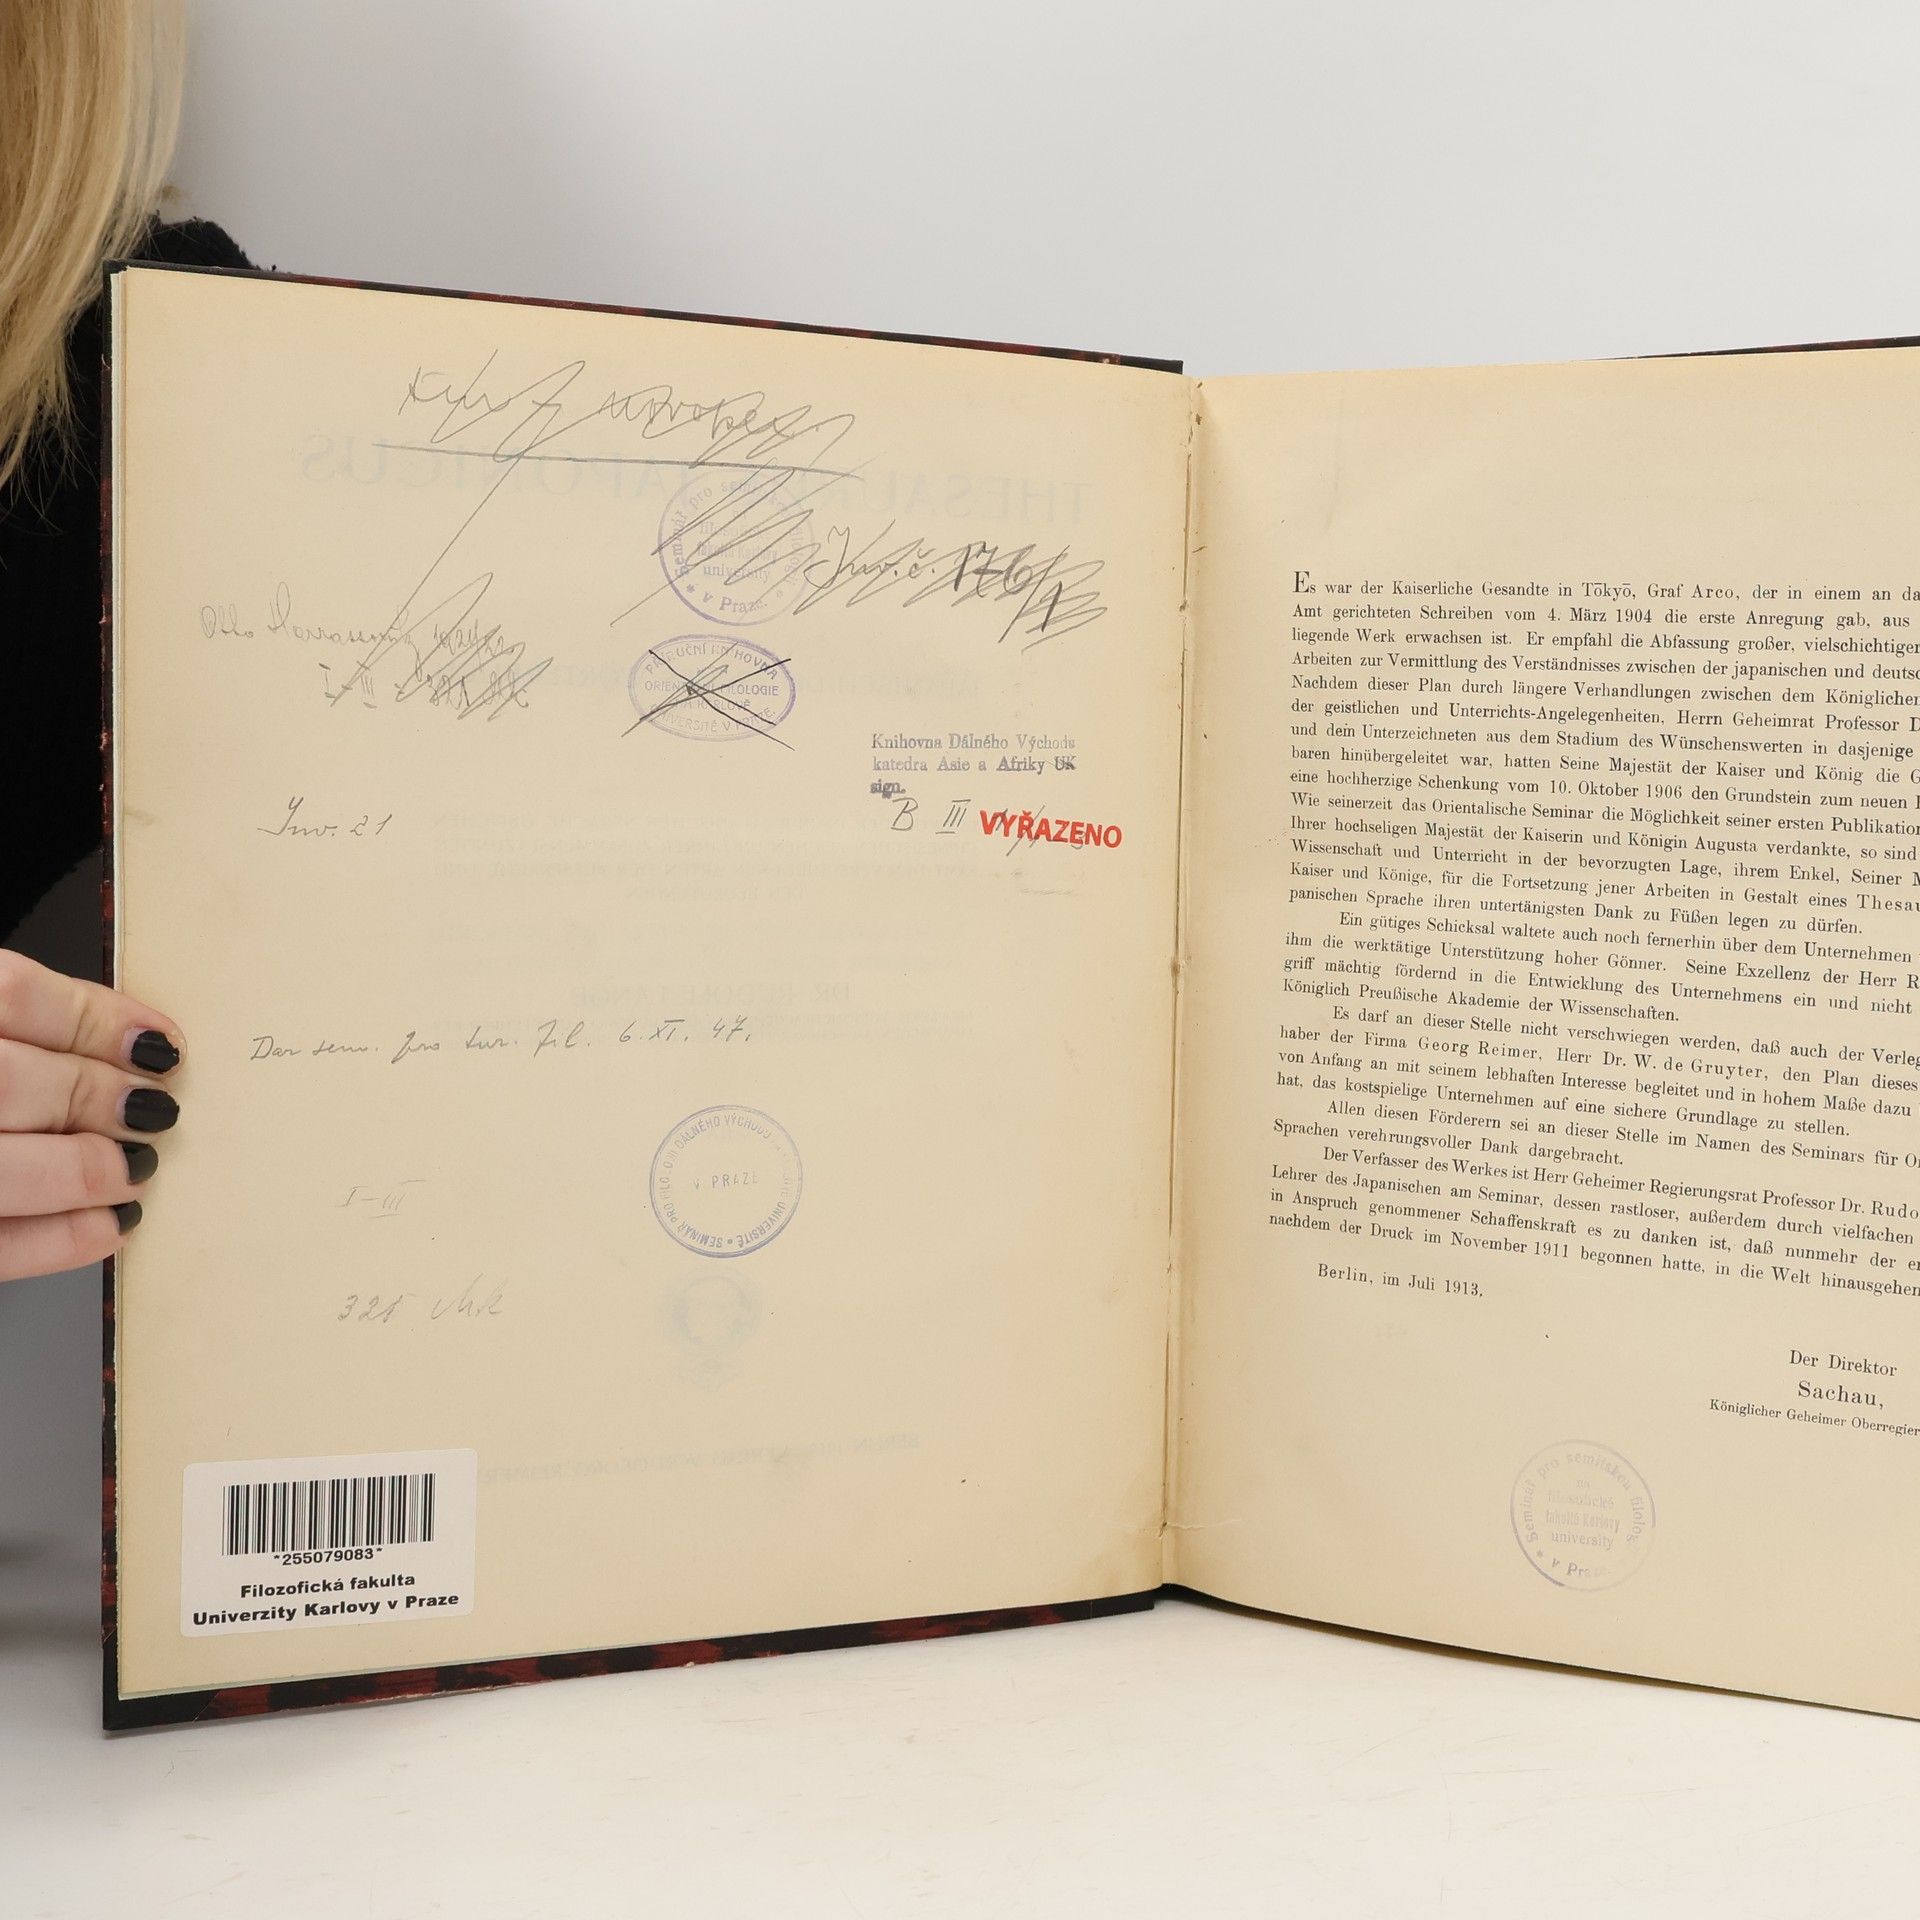 Inv. č. 176/1
Otto Harrassowitz
I–III
PŘÍRUČNÍ KNIHOVNA
ORIENTÁLNÍ FILOLOGIE
NA KARLOVĚ
UNIVERSITĚ V PRAZE
Seminář pro
university
* v Praze. *
Knihovna Dálného Východu
katedra Asie a Afriky UK
sign.
B III
VYŘAZENO
Inv. 21
Dar sem. pro tur. fil. 6. XI. 47.
SEMINÁŘ PRO FILOLOGII DÁLNÉHO VÝCHODU
UNIVERSITĚ
V PRAZE
I–III
325 Mk
*255079083*
Filozofická fakulta
Univerzity Karlovy v Praze
Es war der Kaiserliche Gesandte in Tōkyō, Graf Arco, der in einem an da
Amt gerichteten Schreiben vom 4. März 1904 die erste Anregung gab, aus
liegende Werk erwachsen ist. Er empfahl die Abfassung großer, vielschichtiger
Arbeiten zur Vermittlung des Verständnisses zwischen der japanischen und deutsc
Nachdem dieser Plan durch längere Verhandlungen zwischen dem Königlichen
der geistlichen und Unterrichts-Angelegenheiten, Herrn Geheimrat Professor D
und dem Unterzeichneten aus dem Stadium des Wünschenswerten in dasjenige
baren hinübergeleitet war, hatten Seine Majestät der Kaiser und König die G
eine hochherzige Schenkung vom 10. Oktober 1906 den Grundstein zum neuen
Wie seinerzeit das Orientalische Seminar die Möglichkeit seiner ersten Publikation
Ihrer hochseligen Majestät der Kaiserin und Königin Augusta verdankte, so sind
Wissenschaft und Unterricht in der bevorzugten Lage, ihrem Enkel, Seiner M
Kaiser und Könige, für die Fortsetzung jener Arbeiten in Gestalt eines Thesau
panischen Sprache ihren untertänigsten Dank zu Füßen legen zu dürfen.
Ein gütiges Schicksal waltete auch noch fernerhin über dem Unternehmen
ihm die werktätige Unterstützung hoher Gönner. Seine Exzellenz der Herr R
griff mächtig fördernd in die Entwicklung des Unternehmens ein und nicht
Königlich Preußische Akademie der Wissenschaften.
Es darf an dieser Stelle nicht verschwiegen werden, daß auch der Verleg
haber der Firma Georg Reimer, Herr Dr. W. de Gruyter, den Plan dieses
von Anfang an mit seinem lebhaften Interesse begleitet und in hohem Maße dazu
hat, das kostspielige Unternehmen auf eine sichere Grundlage zu stellen.
Allen diesen Förderern sei an dieser Stelle im Namen des Seminars für Or
Sprachen verehrungsvoller Dank dargebracht.
Der Verfasser des Werkes ist Herr Geheimer Regierungsrat Professor Dr. Rudo
Lehrer des Japanischen am Seminar, dessen rastloser, außerdem durch vielfachen
in Anspruch genommener Schaffenskraft es zu danken ist, daß nunmehr der er
nachdem der Druck im November 1911 begonnen hatte, in die Welt hinausgehen
Berlin, im Juli 1913.
Der Direktor
Sachau,
Königlicher Geheimer Oberregier
Seminář pro semitskou filolog
na
filosofické
fakultě Karlovy
university
* v Praze